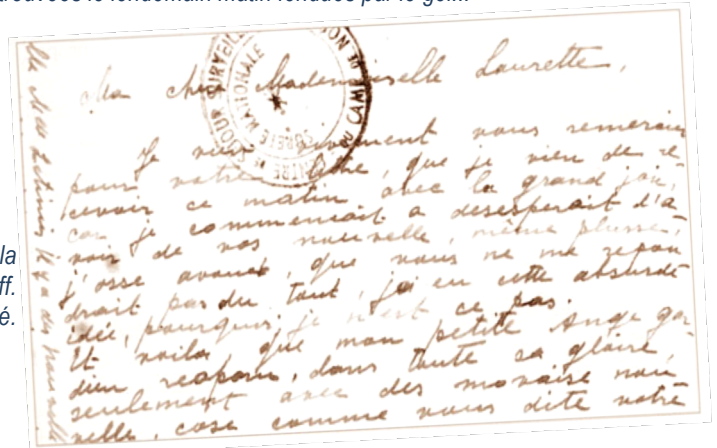 trouvées le lendemain matin fendues par le gel.
la
ff.
é.
Ma chère Mademoiselle Laurette,
Je vien vivement vous remercier
pour votre lettre, que je vien de re
cevoir ce matin avec la grand joie,
car je commencait a desesperait d'a
voir de vos nouvelle, même plusse,
j'osse avouer, que vous ne me repon
drait pas du tout, j'ai eu cette absurde
idée, pourquoi, je n'est ce pas.
Et voila que mon petite Ange gar
dien reaparu, dans toute sa glaire,
seulement avec des movaise nou
velle, cose comme vous dite votre
SURVEILLÉ
SURETE NATIONALE
CAMP